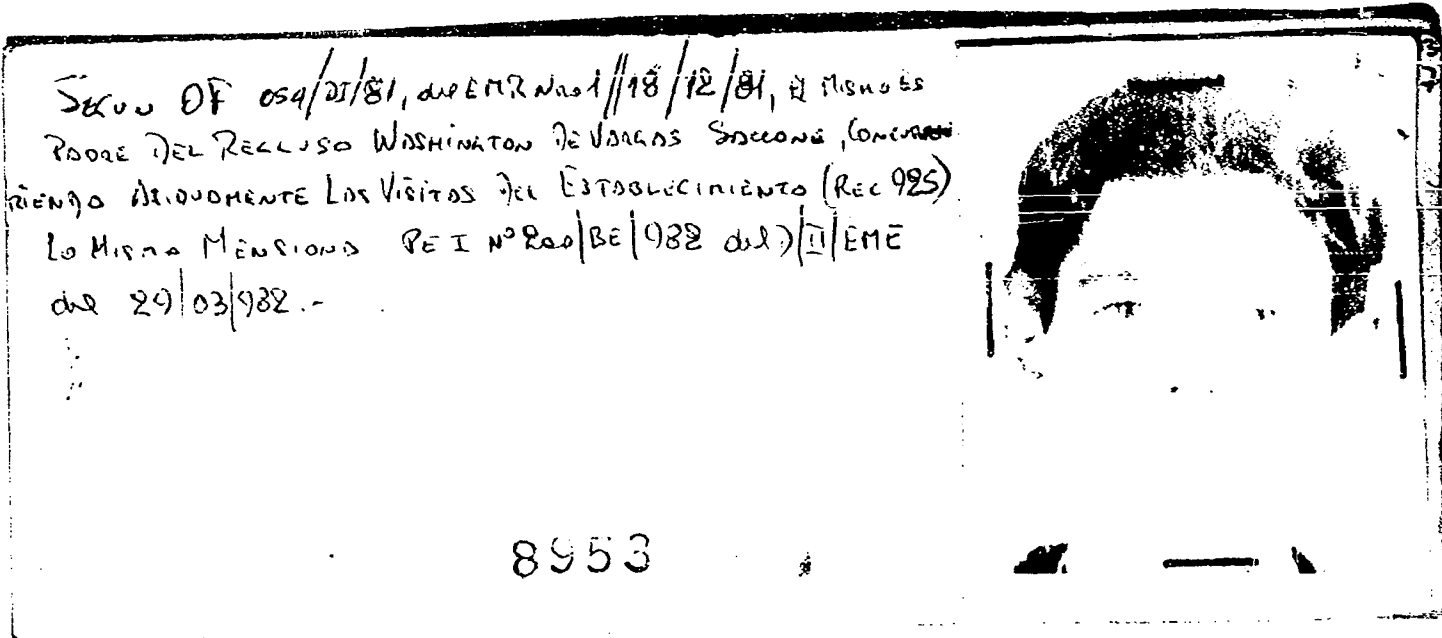 SEGUN OF 054/DI/81, del EMR Nro 1//18/12/81, EL MISMO ES
PADRE DEL RECLUSO WASHINGTON DE VARGAS SACCONE, CONCUR
RIENDO ASIDUAMENTE LAS VISITAS DEL ESTABLECIMIENTO (REC 925)
LO MISMO MENSIONA PE I Nº 200/BE/982 del D/II/EME
del 29/03/982.-
8953